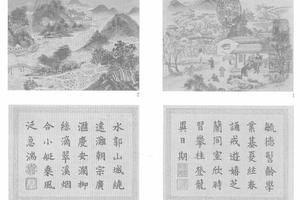 毓德髫齡學
業基夏絃春
誦戒遊嬉芝
蘭同室欣時
習攀桂登龍
異日期
水郭山城繞
遠灘朝宗廣
漑慶安瀾柳
絲滴翠溪烟
合小艇乘風
泛急湍